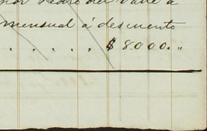 Pedro del Valle á
mensual á descuento
. . . . . . $ 8000..